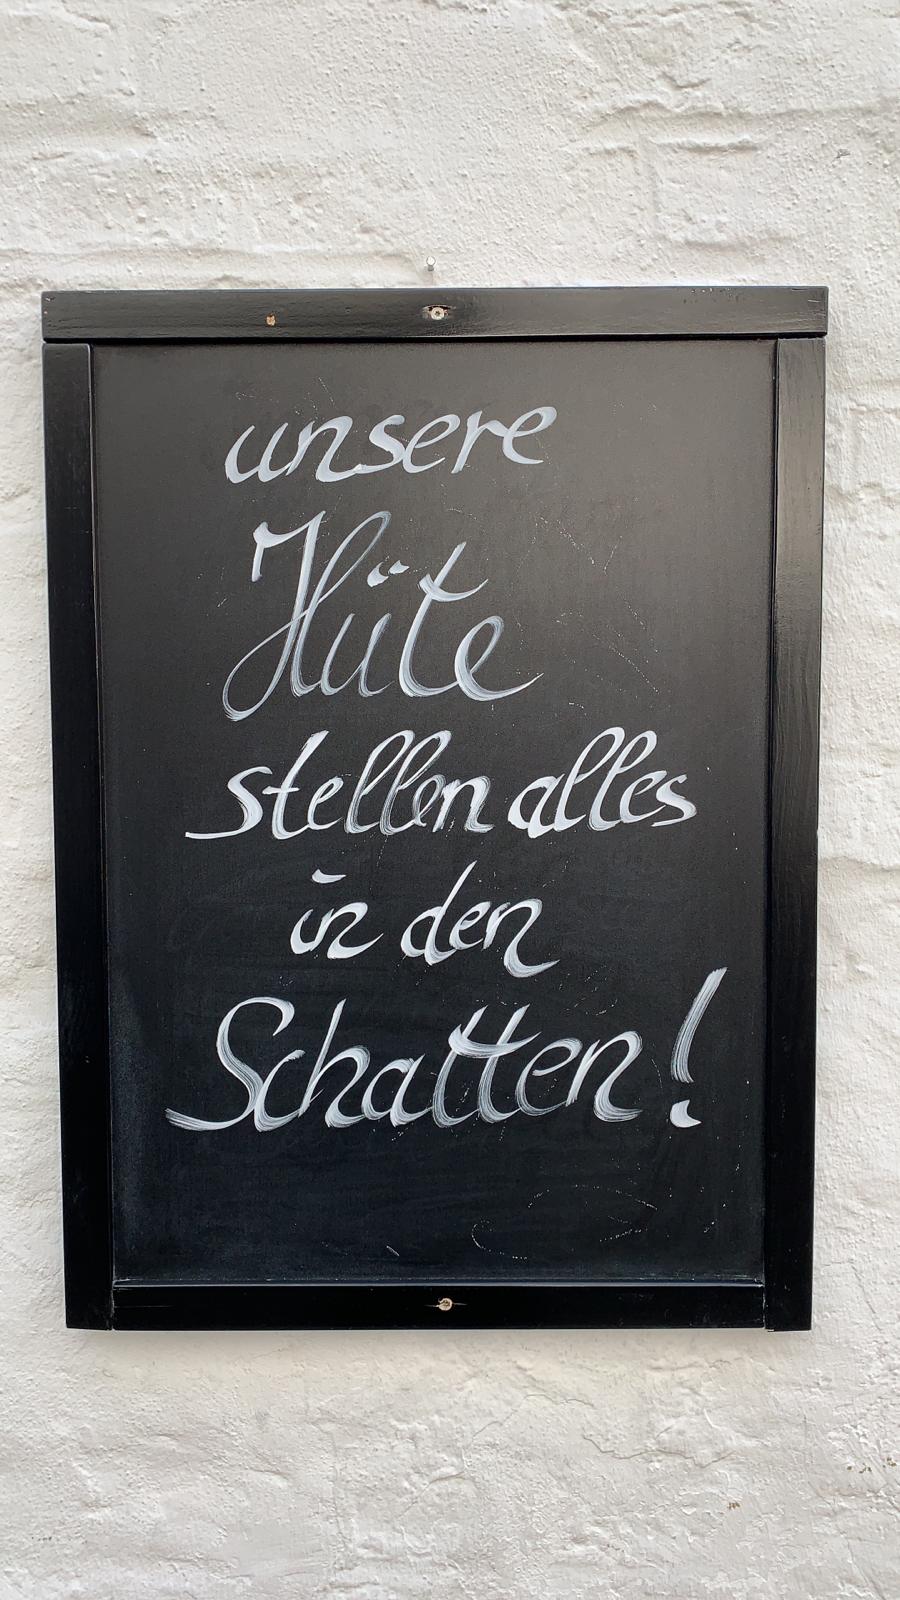 unsere
Hüte
stellen alles
in den
Schatten!